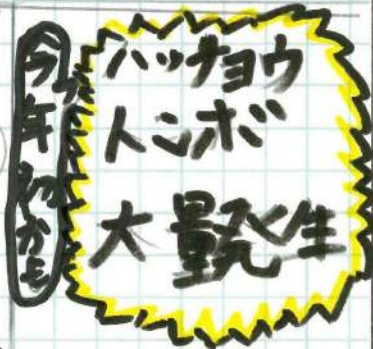 今年初かも
ハッチョウ
トンボ
大量発生